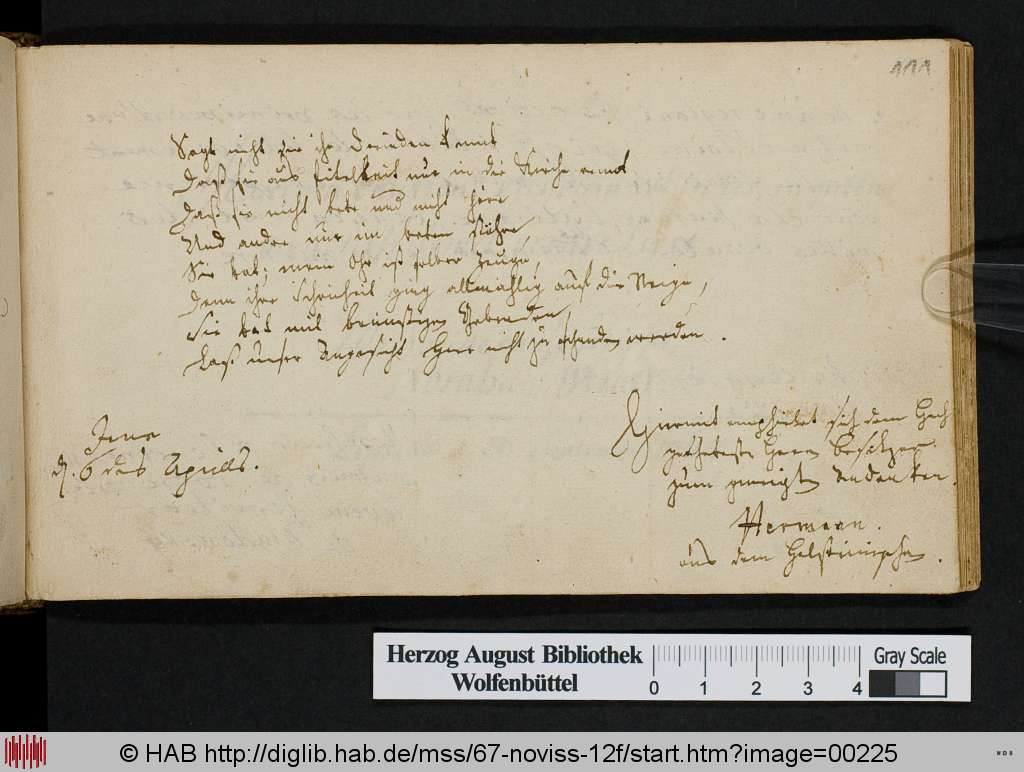 111
Sagt nicht die ihr Dorinden kennt
Daß sie aus Eitelkeit nur in die Kirche rennt
Daß sie nicht bete und nicht höre
Und andre nur im beten stöhre
Sie bat; mein Ohr ist selber Zeuge,
Denn ihre Schönheit ging allmählig auf die Neige,
Sie bat mit brünstigen Geberden,
Laß unser Angesicht Herr nicht zu schanden werden.
Jena
d. 6 des Aprills.
Hiermit empfiehlet sich dem Hoch
geehrtesten Herrn Besitzer
zum geneigten Andenken.
Hermann.
aus dem Holsteinischen.
Herzog August Bibliothek
Wolfenbüttel
0 1 2 3 4
Gray Scale
© HAB http://diglib.hab.de/mss/67-noviss-12f/start.htm?image=00225